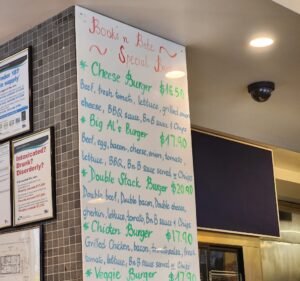 Book's n Bite
Special Bu
* Cheese Burger $16.50
Beef, fresh tomato, lettuce, grilled onion
cheese, BBQ sauce, BnB sauce & Chips
* Big Al's Burger $17.90
Beef, egg, bacon, cheese, onion, tomato,
lettuce, BBQ, BnB sauce served w Chips
* Double Stack Burger $20.90
Double beef, Double bacon, Double cheese,
gherkin, lettuce, tomato, BnB sauce & Chips
* Chicken Burger $17.90
Grilled Chicken, bacon, fresh
tomato, lettuce, BnB sauce served w Chips
* Veggie Burger $17.90
Intoxicated?
Drunk?
Disorderly?